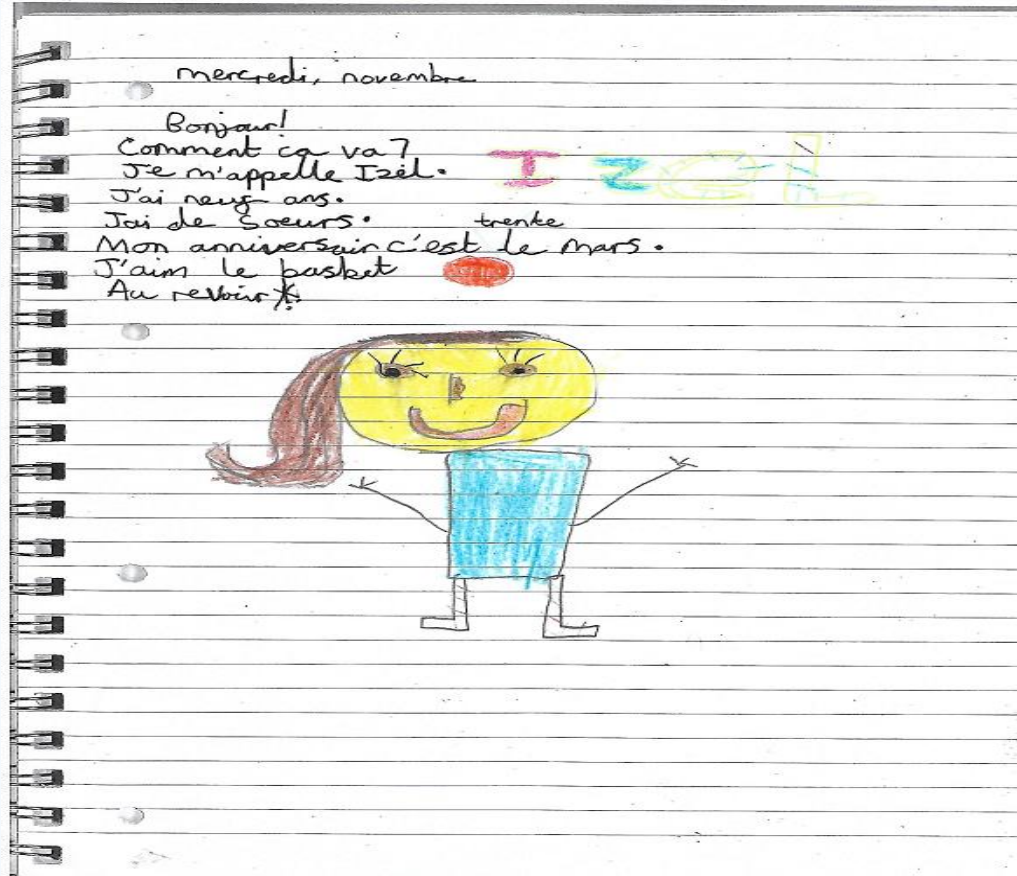 mercredi, novembre
Bonjour!
Comment ça va?
Je m'appelle Izel.
I z e L
J'ai neuf ans.
Jai de soeurs.
trente
Mon anniversair c'est le mars.
J'aim le basket
Au revoir